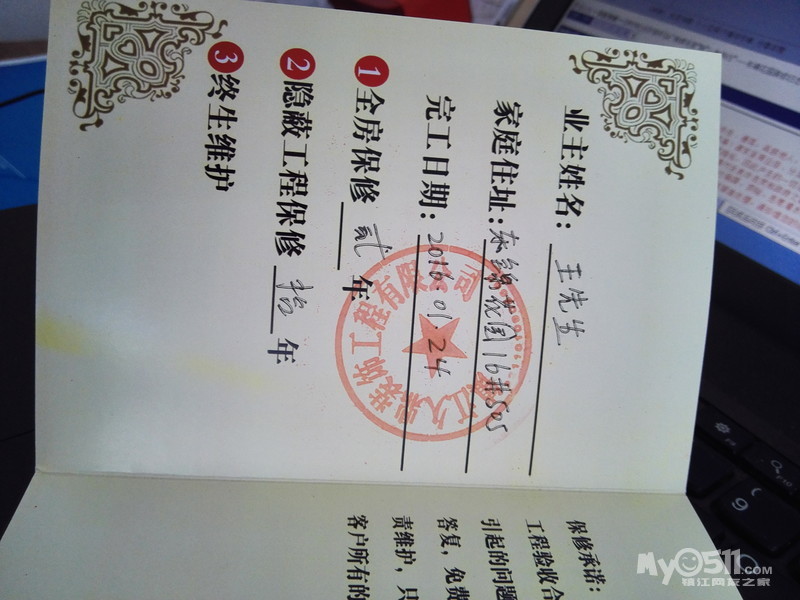 业主姓名：王先生
家庭住址：东锦花园16#505
完工日期：2016.01.24
1 全房保修 贰 年
2 隐蔽工程保修 拾 年
3 终生维护
江久昊装饰工程有限公司
保修承诺：
工程验收合
引起的问题
答复，免费
责维护，只
客户所有的
My0511.COM
镇江网友之家